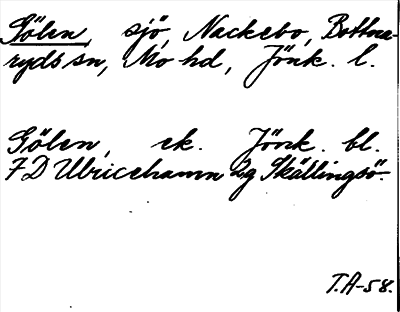 Gölen, sjö, Nackebo, Bottna-
ryds sn, Mo hd, Jönk. l.
Gölen, ek. Jönk. bl.
7 D Ulricehamn 2g Skällingsö.
T.A-58.